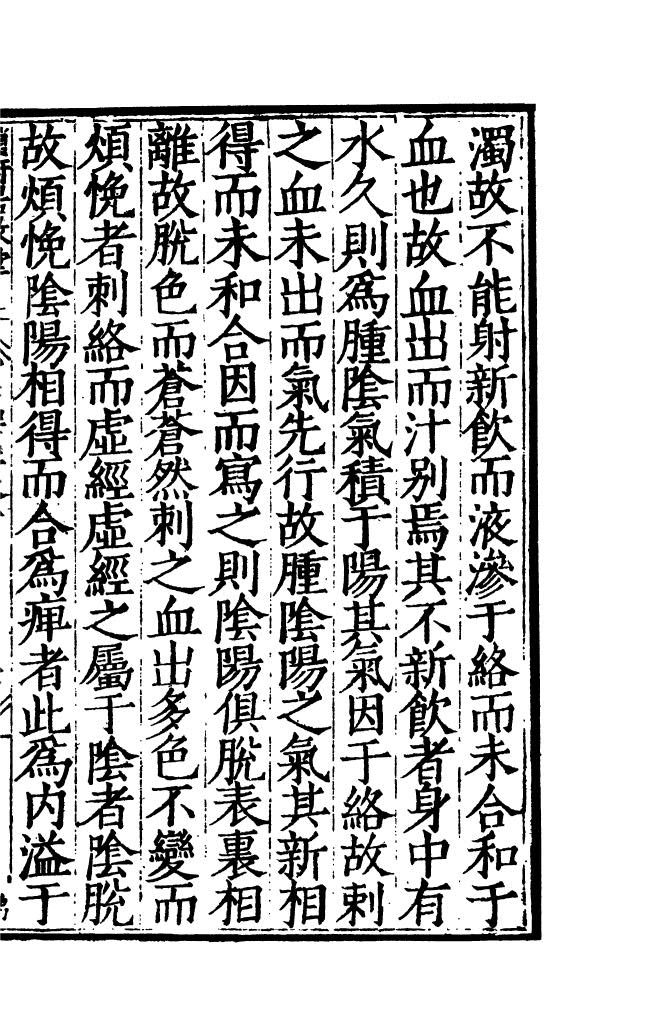 濁故不能射新飲而液滲于絡而未合和于
血也故血出而汁别焉其不新飲者身中有
水久則爲腫陰氣積于陽其氣因于絡故刺
之血未出而氣先行故腫陰陽之氣其新相
得而未和合因而寫之則陰陽俱脫表裏相
離故脫色而蒼蒼然刺之血出多色不變而
煩悗者刺絡而虛經虛經之屬于陰者陰脫
故煩悗陰陽相得而合爲痺者此爲内溢于